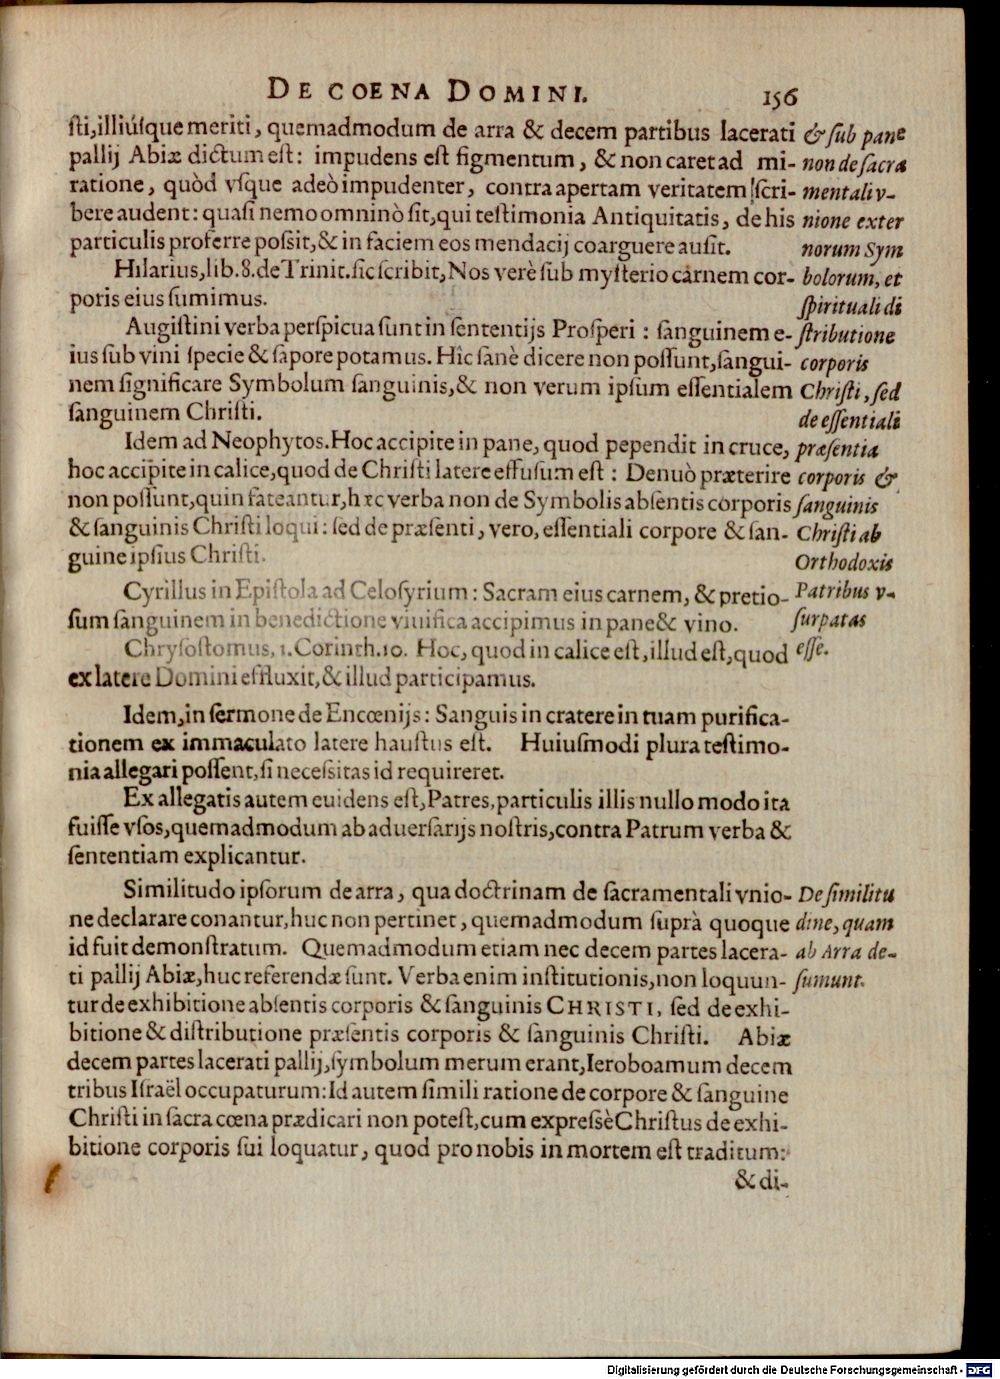 DE COENA DOMINI. 156
sti,illiúsque meriti, quemadmodum de arra & decem partibus lacerati
pallij Abiæ dictum est: impudens est figmentum, & non caret ad mi-
ratione, quòd vsque adeò impudenter, contra apertam veritatem scri-
bere audent: quasi nemo omninò sit, qui testimonia Antiquitatis, de his
particulis proferre possit,& in faciem eos mendacij coarguere ausit.
Hilarius, lib. 8. de Trinit. sic scribit, Nos verè sub mysterio carnem cor-
poris eius sumimus.
Augistini verba perspicua sunt in sententijs Prosperi : sanguinem e-
ius sub vini specie & sapore potamus. Hîc sanè dicere non possunt, sangui-
nem significare Symbolum sanguinis,& non verum ipsum essentialem
sanguinem Christi.
Idem ad Neophytos. Hoc accipite in pane, quod pependit in cruce,
hoc accipite in calice, quod de Christi latere effusum est : Denuò præterire
non possunt, quin fateantur, hæc verba non de Symbolis absentis corporis
& sanguinis Christi loqui: sed de præsenti, vero, essentiali corpore & san-
guine ipsius Christi.
Cyrillus in Epistola ad Celosyrium : Sacram eius carnem, & pretio-
sum sanguinem in benedictione viuifica accipimus in pane & vino.
Chrysostomus, 1. Corinth. 10. Hoc, quod in calice est, illud est, quod
ex latere Domini effluxit,& illud participamus.
Idem, in sermone de Encœnijs: Sanguis in cratere in tuam purifica-
tionem ex immaculato latere haustus est. Huiusmodi plura testimo-
nia allegari possent, si necessitas id requireret.
Ex allegatis autem euidens est, Patres, particulis illis nullo modo ita
fuisse vsos, quemadmodum ab aduersarijs nostris, contra Patrum verba &
sententiam explicantur.
Similitudo ipsorum de arra, qua doctrinam de sacramentali vnio-
ne declarare conantur, huc non pertinet, quemadmodum suprà quoque
id fuit demonstratum. Quemadmodum etiam nec decem partes lacera-
ti pallij Abiæ, huc referendæ sunt. Verba enim institutionis, non loquun-
tur de exhibitione absentis corporis & sanguinis CHRISTI, sed de exhi-
bitione & distributione præsentis corporis & sanguinis Christi. Abiæ
decem partes lacerati pallij, symbolum merum erant, Ieroboamum decem
tribus Israël occupaturum: Id autem simili ratione de corpore & sanguine
Christi in sacra cœna prædicari non potest, cum expressè Christus de exhi-
bitione corporis sui loquatur, quod pro nobis in mortem est traditum:
& di-
& sub pane
non de sacra
mentali v-
nione exter
norum Sym
bolorum, et
spirituali di
stributione
corporis
Christi, sed
de essentiali
præsentia
corporis &
sanguinis
Christi ab
Orthodoxis
Patribus v-
surpatas
esse.
De similitu
dine, quam
ab Arra de-
sumunt.
Digitalisierung gefördert durch die Deutsche Forschungsgemeinschaft - DFG